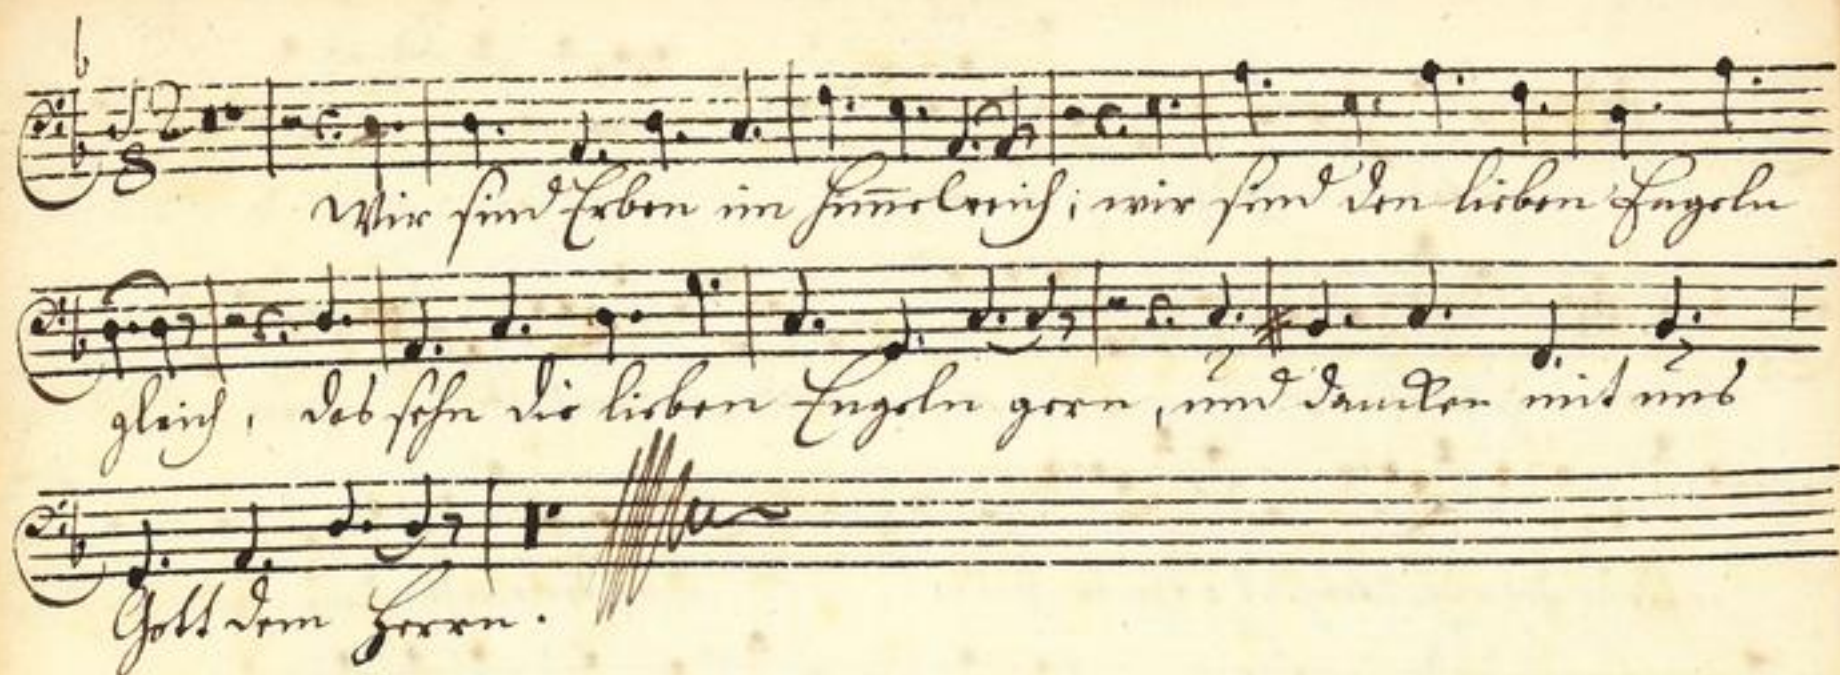 Wir sind Erben im Him̄elreich; wir sind den lieben Engeln
gleich, das sehn die lieben Engeln gern, und dancken mit uns
Gott dem Herrn.